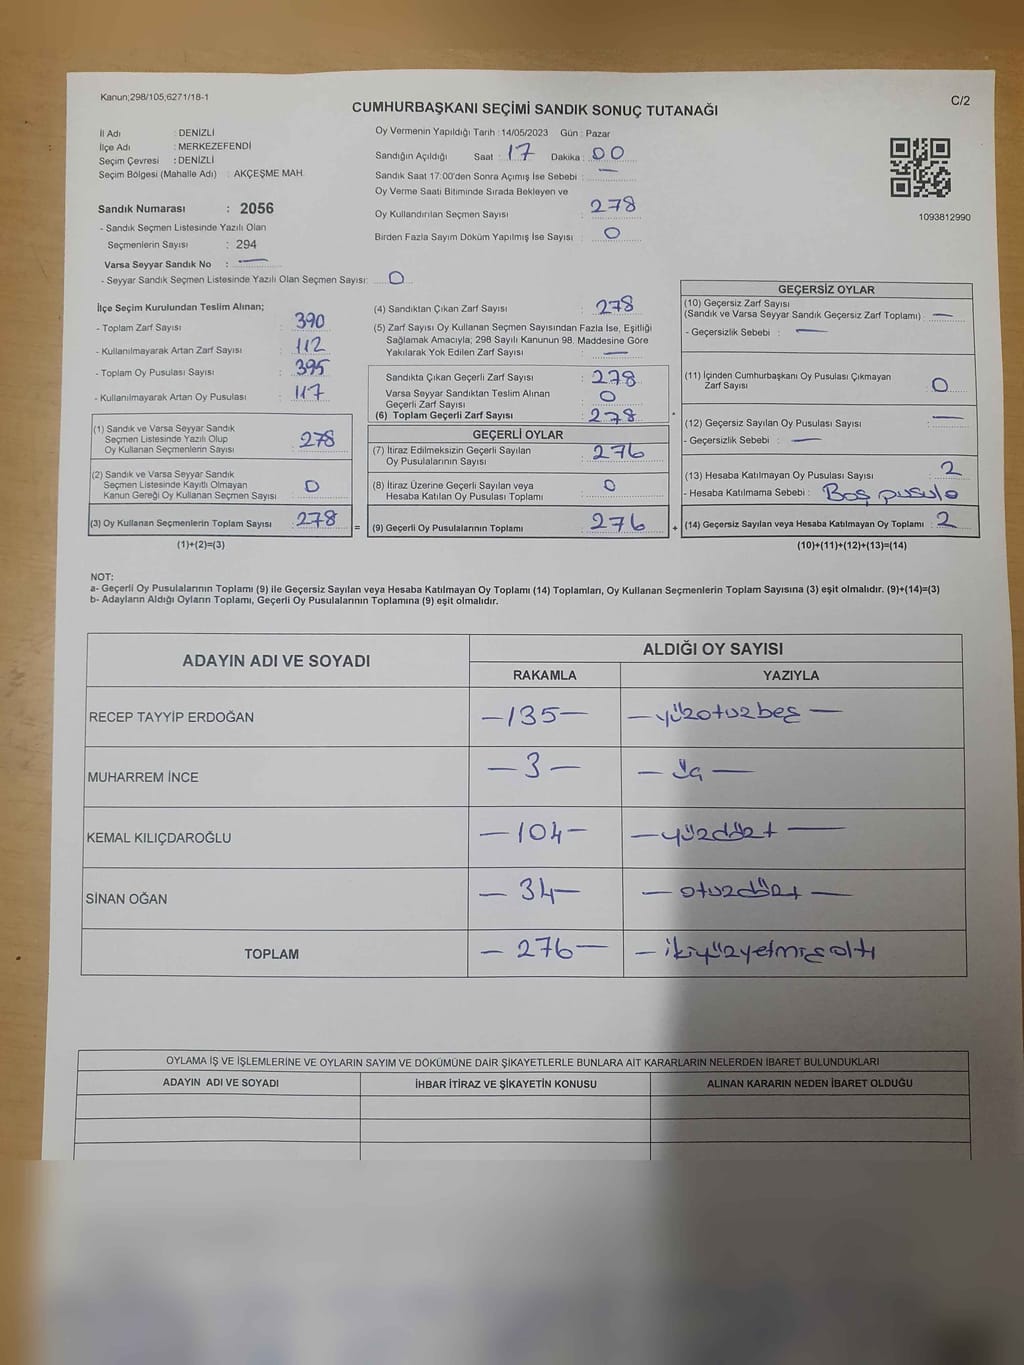 Kanun;298/105;6271/18-1
C/2
CUMHURBAŞKANI SEÇİMİ SANDIK SONUÇ TUTANAĞI
İl Adı : DENİZLİ
İlçe Adı : MERKEZEFENDİ
Seçim Çevresi : DENİZLİ
Seçim Bölgesi (Mahalle Adı) : AKÇEŞME MAH.
Sandık Numarası : 2056
- Sandık Seçmen Listesinde Yazılı Olan
Seçmenlerin Sayısı : 294
Varsa Seyyar Sandık No : —
- Seyyar Sandık Seçmen Listesinde Yazılı Olan Seçmen Sayısı: 0
Oy Vermenin Yapıldığı Tarih : 14/05/2023 Gün : Pazar
Sandığın Açıldığı Saat : 17 Dakika : 00
Sandık Saat 17:00'den Sonra Açımış İse Sebebi : —
Oy Verme Saati Bitiminde Sırada Bekleyen ve
Oy Kullandırılan Seçmen Sayısı : 278
Birden Fazla Sayım Döküm Yapılmış İse Sayısı : 0
1093812990
İlçe Seçim Kurulundan Teslim Alınan;
- Toplam Zarf Sayısı : 390
- Kullanılmayarak Artan Zarf Sayısı : 112
- Toplam Oy Pusulası Sayısı : 395
- Kullanılmayarak Artan Oy Pusulası : 117
(1) Sandık ve Varsa Seyyar Sandık
Seçmen Listesinde Yazılı Olup
Oy Kullanan Seçmenlerin Sayısı : 278
(2) Sandık ve Varsa Seyyar Sandık
Seçmen Listesinde Kayıtlı Olmayan
Kanun Gereği Oy Kullanan Seçmen Sayısı : 0
(3) Oy Kullanan Seçmenlerin Toplam Sayısı : 278
(1)+(2)=(3)
=
(4) Sandıktan Çıkan Zarf Sayısı : 278
(5) Zarf Sayısı Oy Kullanan Seçmen Sayısından Fazla İse, Eşitliği
Sağlamak Amacıyla; 298 Sayılı Kanunun 98. Maddesine Göre
Yakılarak Yok Edilen Zarf Sayısı : —
Sandıkta Çıkan Geçerli Zarf Sayısı : 278
Varsa Seyyar Sandıktan Teslim Alınan
Geçerli Zarf Sayısı : 0
(6) Toplam Geçerli Zarf Sayısı : 278
GEÇERLİ OYLAR
(7) İtiraz Edilmeksizin Geçerli Sayılan
Oy Pusulalarının Sayısı : 276
(8) İtiraz Üzerine Geçerli Sayılan veya
Hesaba Katılan Oy Pusulası Toplamı : 0
(9) Geçerli Oy Pusulalarının Toplamı : 276
+
GEÇERSİZ OYLAR
(10) Geçersiz Zarf Sayısı
(Sandık ve Varsa Seyyar Sandık Geçersiz Zarf Toplamı) : —
- Geçersizlik Sebebi : —
(11) İçinden Cumhurbaşkanı Oy Pusulası Çıkmayan
Zarf Sayısı : 0
(12) Geçersiz Sayılan Oy Pusulası Sayısı : —
- Geçersizlik Sebebi : —
(13) Hesaba Katılmayan Oy Pusulası Sayısı : 2
- Hesaba Katılmama Sebebi : Boş pusula
(14) Geçersiz Sayılan veya Hesaba Katılmayan Oy Toplamı : 2
(10)+(11)+(12)+(13)=(14)
NOT:
a- Geçerli Oy Pusulalarının Toplamı (9) ile Geçersiz Sayılan veya Hesaba Katılmayan Oy Toplamı (14) Toplamları, Oy Kullanan Seçmenlerin Toplam Sayısına (3) eşit olmalıdır. (9)+(14)=(3)
b- Adayların Aldığı Oyların Toplamı, Geçerli Oy Pusulalarının Toplamına (9) eşit olmalıdır.
ADAYIN ADI VE SOYADI ALDIĞI OY SAYISI
RAKAMLA YAZIYLA
RECEP TAYYİP ERDOĞAN —135— —yüzotuzbeş—
MUHARREM İNCE —3— —üç—
KEMAL KILIÇDAROĞLU —104— —yüzdört—
SİNAN OĞAN —34— —otuzdört—
TOPLAM —276— —ikiyüzyetmişaltı
OYLAMA İŞ VE İŞLEMLERİNE VE OYLARIN SAYIM VE DÖKÜMÜNE DAİR ŞİKAYETLERLE BUNLARA AİT KARARLARIN NELERDEN İBARET BULUNDUKLARI
ADAYIN ADI VE SOYADI İHBAR İTİRAZ VE ŞİKAYETİN KONUSU ALINAN KARARIN NEDEN İBARET OLDUĞU